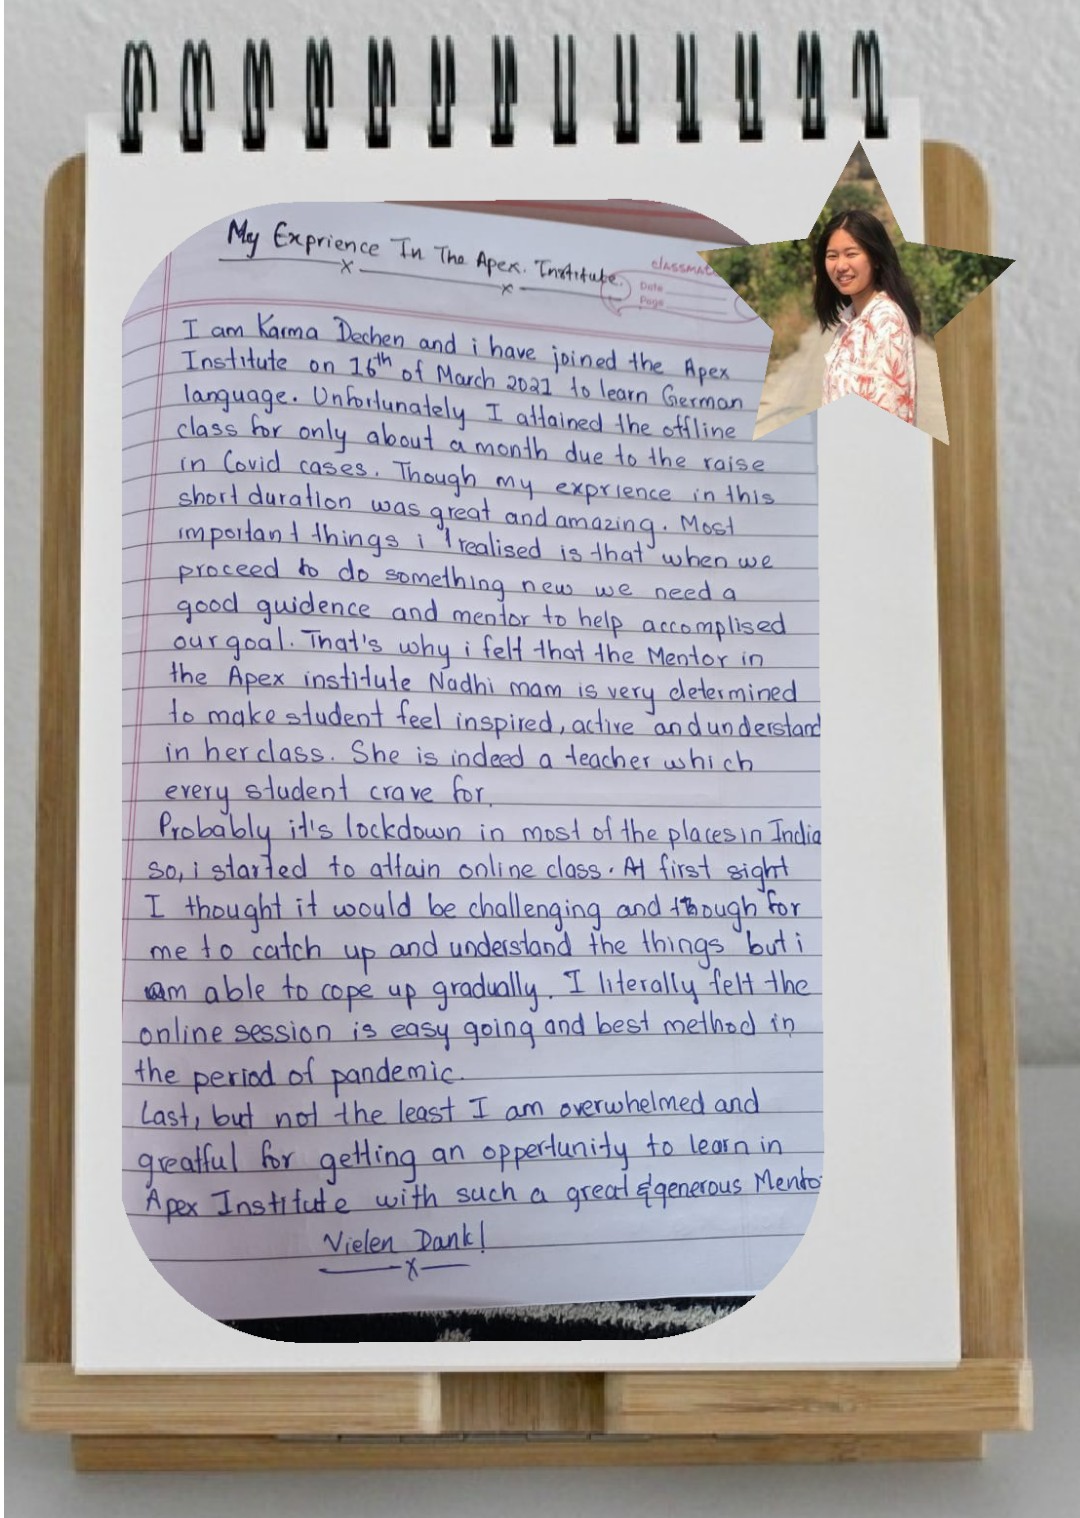 My Exprience In The Apex. Institute.
classmat
Date
Page
I am Karma Dechen and i have joined the Apex
Institute on 16th of March 2021 to learn German
language. Unfortunately I attained the offline
class for only about a month due to the raise
in Covid cases. Though my exprience in this
short duration was great and amazing. Most
important things i realised is that when we
proceed to do something new we need a
good guidence and mentor to help accomplised
our goal. That's why i felt that the Mentor in
the Apex institute Nadhi mam is very determined
to make student feel inspired, active and understand
in her class. She is indeed a teacher which
every student crave for.
Probably it's lockdown in most of the places in India
so, i started to attain online class. At first sight
I thought it would be challenging and though for
me to catch up and understand the things but i
am able to cope up gradually. I literally felt the
online session is easy going and best method in
the period of pandemic.
Last, but not the least I am overwhelmed and
greatful for getting an oppertunity to learn in
Apex Institute with such a great & generous Mento
Vielen Dank!